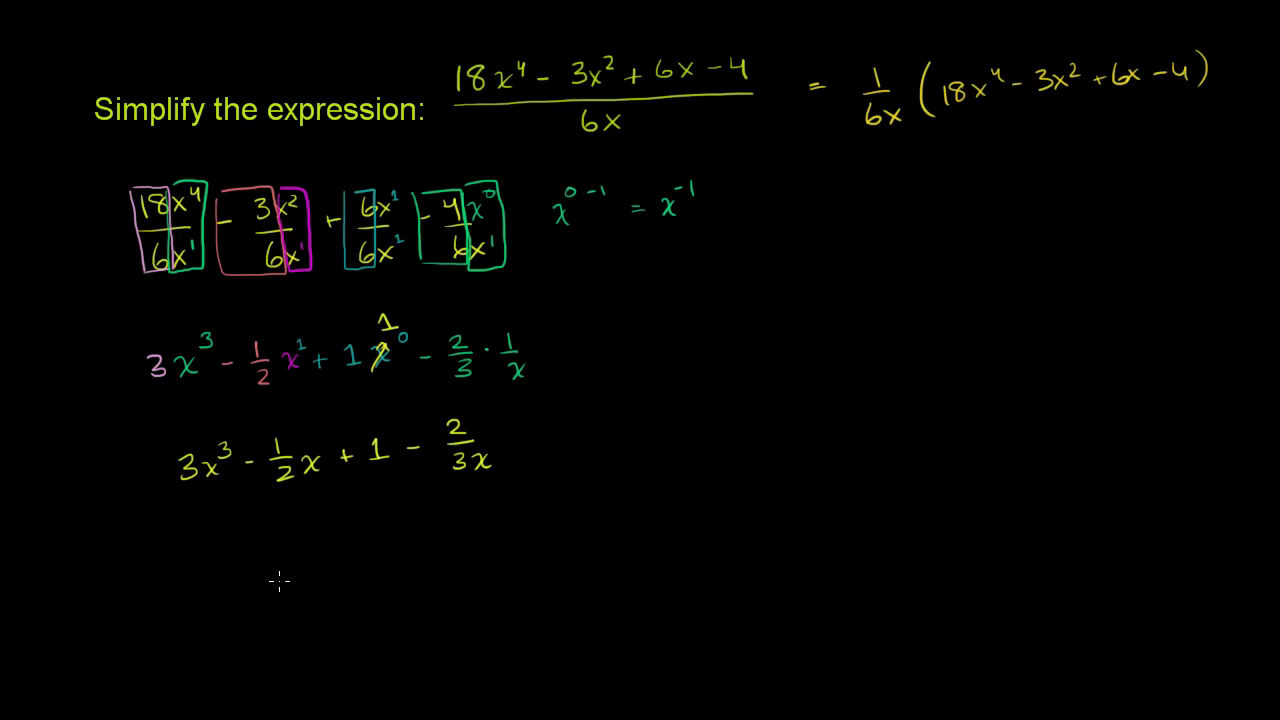 Simplify the expression: (18x⁴ - 3x² + 6x - 4)/(6x) = 1/(6x) (18x⁴ - 3x² + 6x - 4)
18x⁴/6x¹ - 3x²/6x¹ + 6x¹/6x¹ - 4x⁰/6x¹ x⁰⁻¹ = x⁻¹
1
3x³ - 1/2 x¹ + 1x⁰ - 2/3 · 1/x
3x³ - 1/2 x + 1 - 2/3x